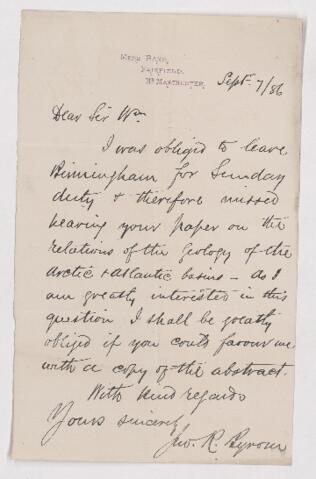 MERE BANK,
FAIRFIELD,
NR MANCHESTER.
Sept 7/86
Dear Sir Wm
I was obliged to leave
Birmingham for Sunday
duty & therefore missed
hearing your paper on the
relations of the Geology of the
Arctic & Atlantic basins – As I
am greatly interested in this
question I shall be greatly
obliged if you could favour me
with a copy of the abstract.
With kind regards
Yours sincerely
Jno. R.